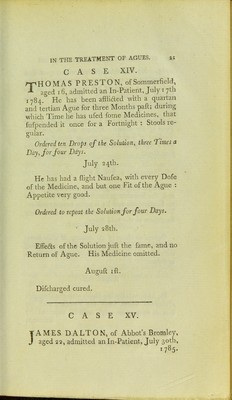 IN THE TREATMENT OF AGUES. 21
CASE XIV.
THOMAS PRESTON, of Sommerfield,
aged 18, admitted an In-Patient, July 17th
1784. He has been afflicted with a quartan
and tertian Ague for three Months paſt; during
which Time he has uſed ſome Medicines, that
ſuſpended it once for a Fortnight : Stools re-
gular.
Ordered ten Drops of the Solution, three Times a
Day, for four Days.
July 24th.
He has had a ſlight Nauſea, with every Doſe
of the Medicine, and but one Fit of the Ague :
Appetite very good.
Ordered to repeat the Solution for four Days.
July 28th.
Effects of the Solution juſt the ſame, and no
Return of Ague. His Medicine omitted.
Auguſt 1ſt.
Diſcharged cured.
CASE XV.
JAMES DALTON, of Abbot's Bromley,
aged 22, admitted an In-Patient, July 30th,
1785.